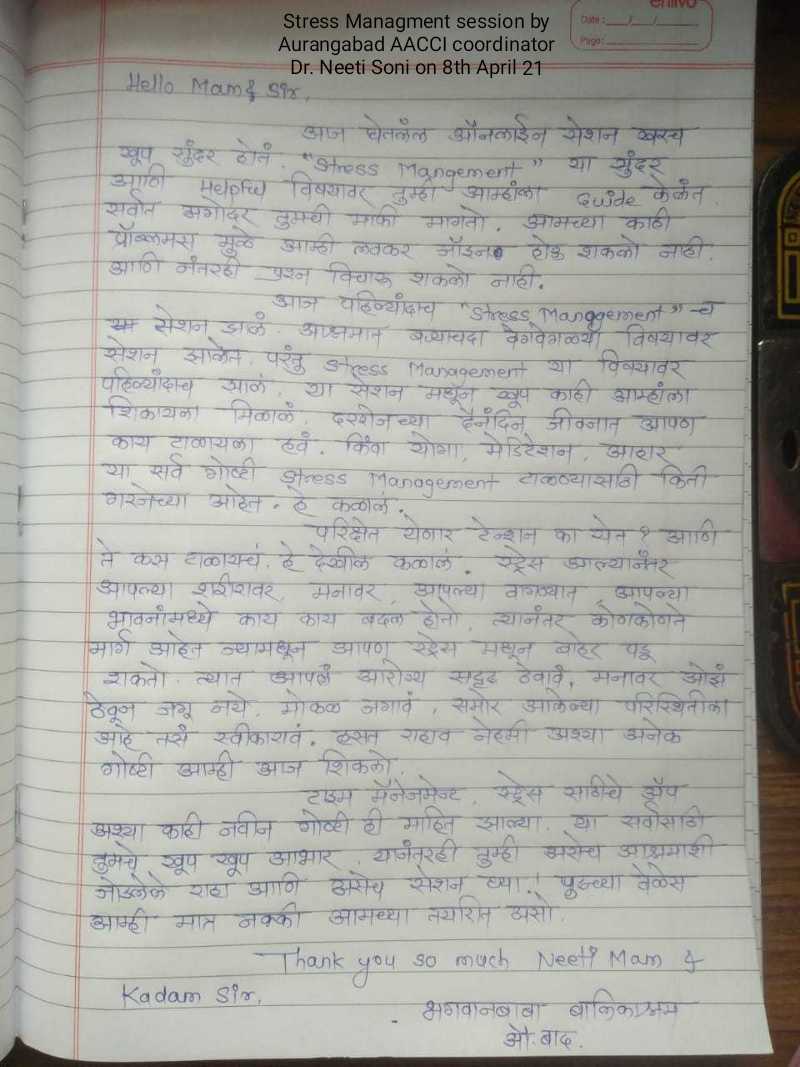 enlivo
Date :
Page:
Stress Managment session by
Aurangabad AACCI coordinator
Dr. Neeti Soni on 8th April 21
Hello Mam & Sir,
आज घेतलेल ऑनलाईन सेशन खरच
खूप सुंदर होतं. "Stress Mangement" या सुंदर
आणि Helpful विषयावर तुम्ही आम्हांला Guide केलंत.
सर्वात अगोदर तुमची माफी मागतो. आमच्या काही
प्रॉब्लमस मुळे आम्ही लवकर जॉइन होऊ शकलो नाही.
आणि नंतरही प्रश्न विचारू शकलो नाही.
आज पहिल्यांदाच "Stress Management" -च
सेशन झालं. आश्रमात बऱ्याचदा वेगवेगळ्या विषयावर
सेशन झालेत. परंतु Stress Management या विषयावर
पहिल्यांदाच झालं. या सेशन मधून खूप काही आम्हांला
शिकायला मिळालं. दररोजच्या दैनंदिन जीवनात आपण
काय टाळायला हवं. किंवा योगा, मेडिटेशन, आहार
या सर्व गोष्टी Stress Management टाळण्यासाठी किती
गरजेच्या आहेत. हे कळालं.
परिक्षेत येणार टेन्शन का येत ? आणि
ते कस टाळायचं. हे देखील कळालं. स्ट्रेस आल्यानंतर
आपल्या शरीरावर, मनावर, आपल्या वागण्यात, आपल्या
भावनांमध्ये काय काय बदल होतो. त्यानंतर कोणकोणते
मार्ग आहेत ज्यामधून आपण स्ट्रेस मधून बाहेर पडू
शकतो. त्यात आपलं आरोग्य सदृढ ठेवावे, मनावर ओझं
ठेवून जगू नये. मोकळ जगावं, समोर आलेल्या परिस्थितीला
आहे तसं स्वीकारावं. हसत राहाव नेहमी अश्या अनेक
गोष्टी आम्ही आज शिकलो.
टाइम मॅनेजमेन्ट, स्ट्रेस साठीचे ॲप
अश्या काही नवीन गोष्टी ही माहित झाल्या. या सर्वांसाठी
तुमचे खूप खूप आभार. यानंतरही तुम्ही असेच आश्रमाशी
जोडलेले राहा आणि असेच सेशन घ्या.! पुढच्या वेळेस
आम्ही मात्र नक्की आमच्या तयारीत असो.
Thank you so much Neeti Mam &
Kadam Sir.
भगवानबाबा बालिकाश्रम
औ.बाद.